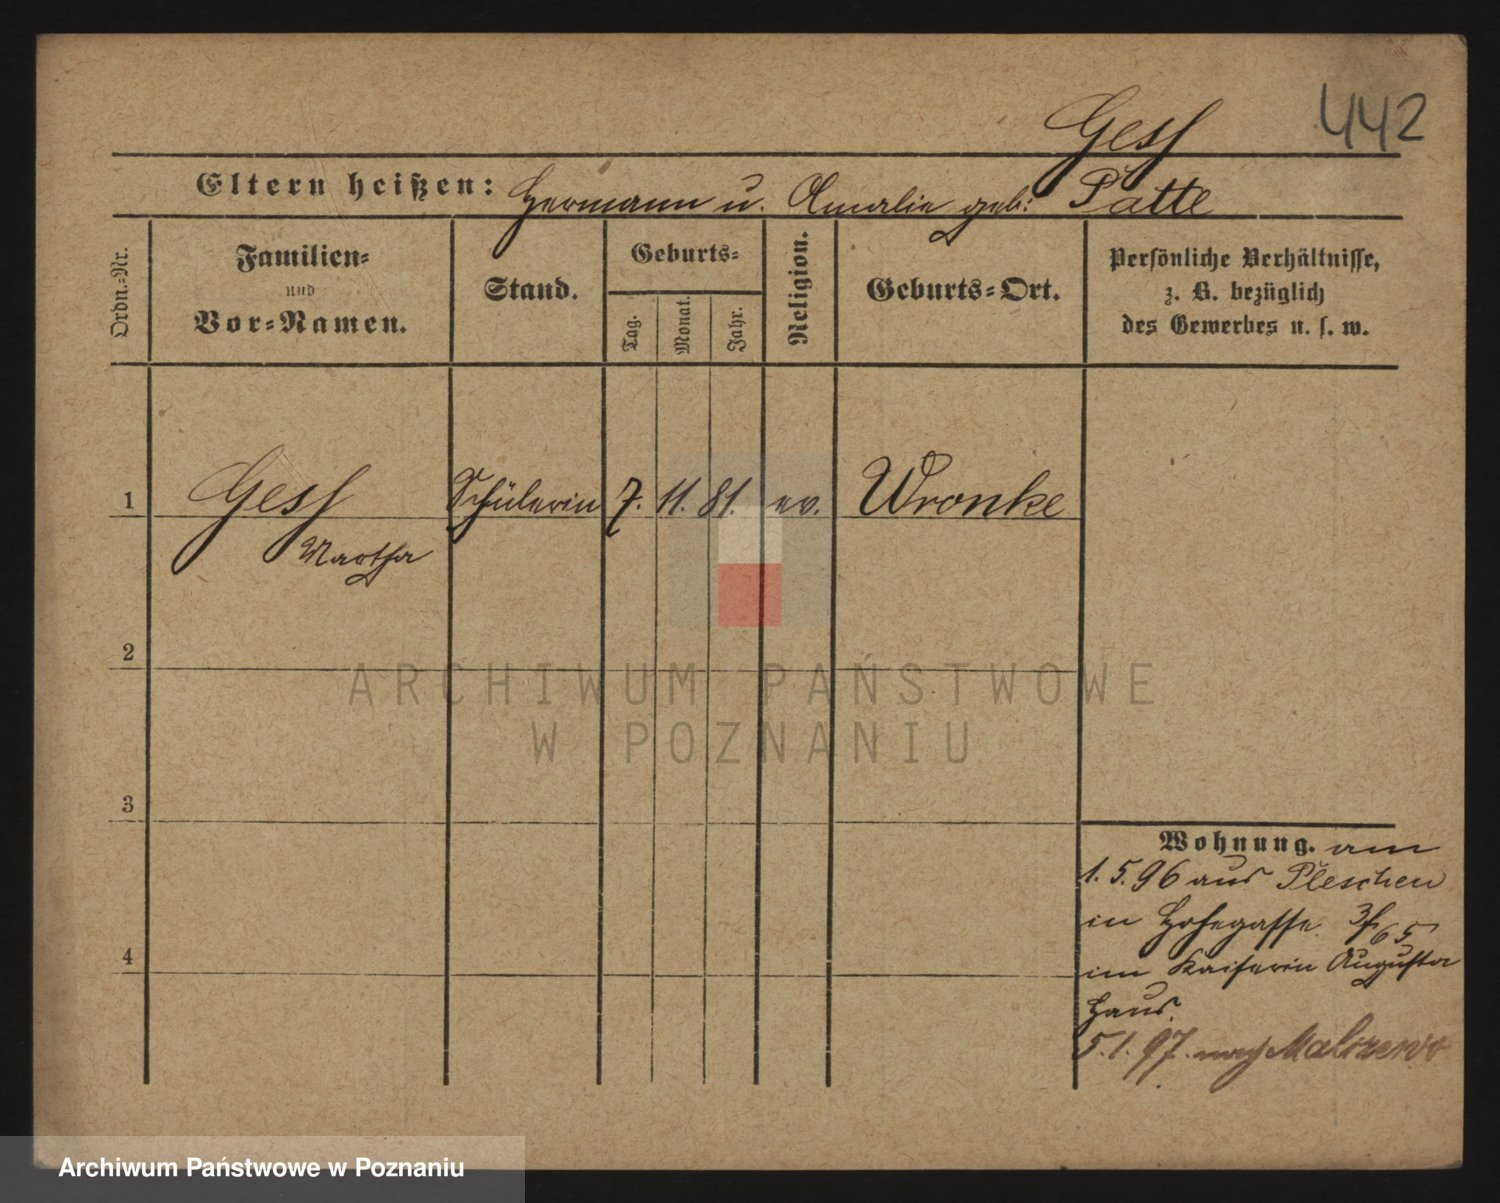 442
Gess
Eltern heißen: Hermann u. Amalie geb: Patte
Ordn.-Nr.
Familien-
und
Vor-Namen.
Stand.
Geburts-
Tag.
Monat.
Jahr.
Religion.
Geburts-Ort.
Persönliche Verhältnisse,
z. B. bezüglich
des Gewerbes u. s. w.
1 Gess Schülerin 7. 11. 81. ev. Wronke
Martha
2
3
4
Wohnung. am
1. 5. 96 aus Pleschen
in Hohegasse 3/65
im Kaiserin Augusta
Haus.
5. 1. 97. nach
ARCHIWUM PAŃSTWOWE
W POZNANIU
Archiwum Państwowe w Poznaniu